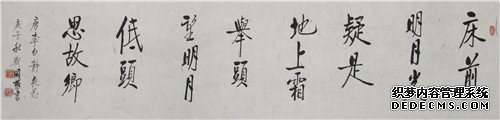 床前
明月光
疑是
地上霜
舉頭
望明月
低頭
思故鄉
唐李白靜夜思
織夢内容管理系统
DEDECMS.COM